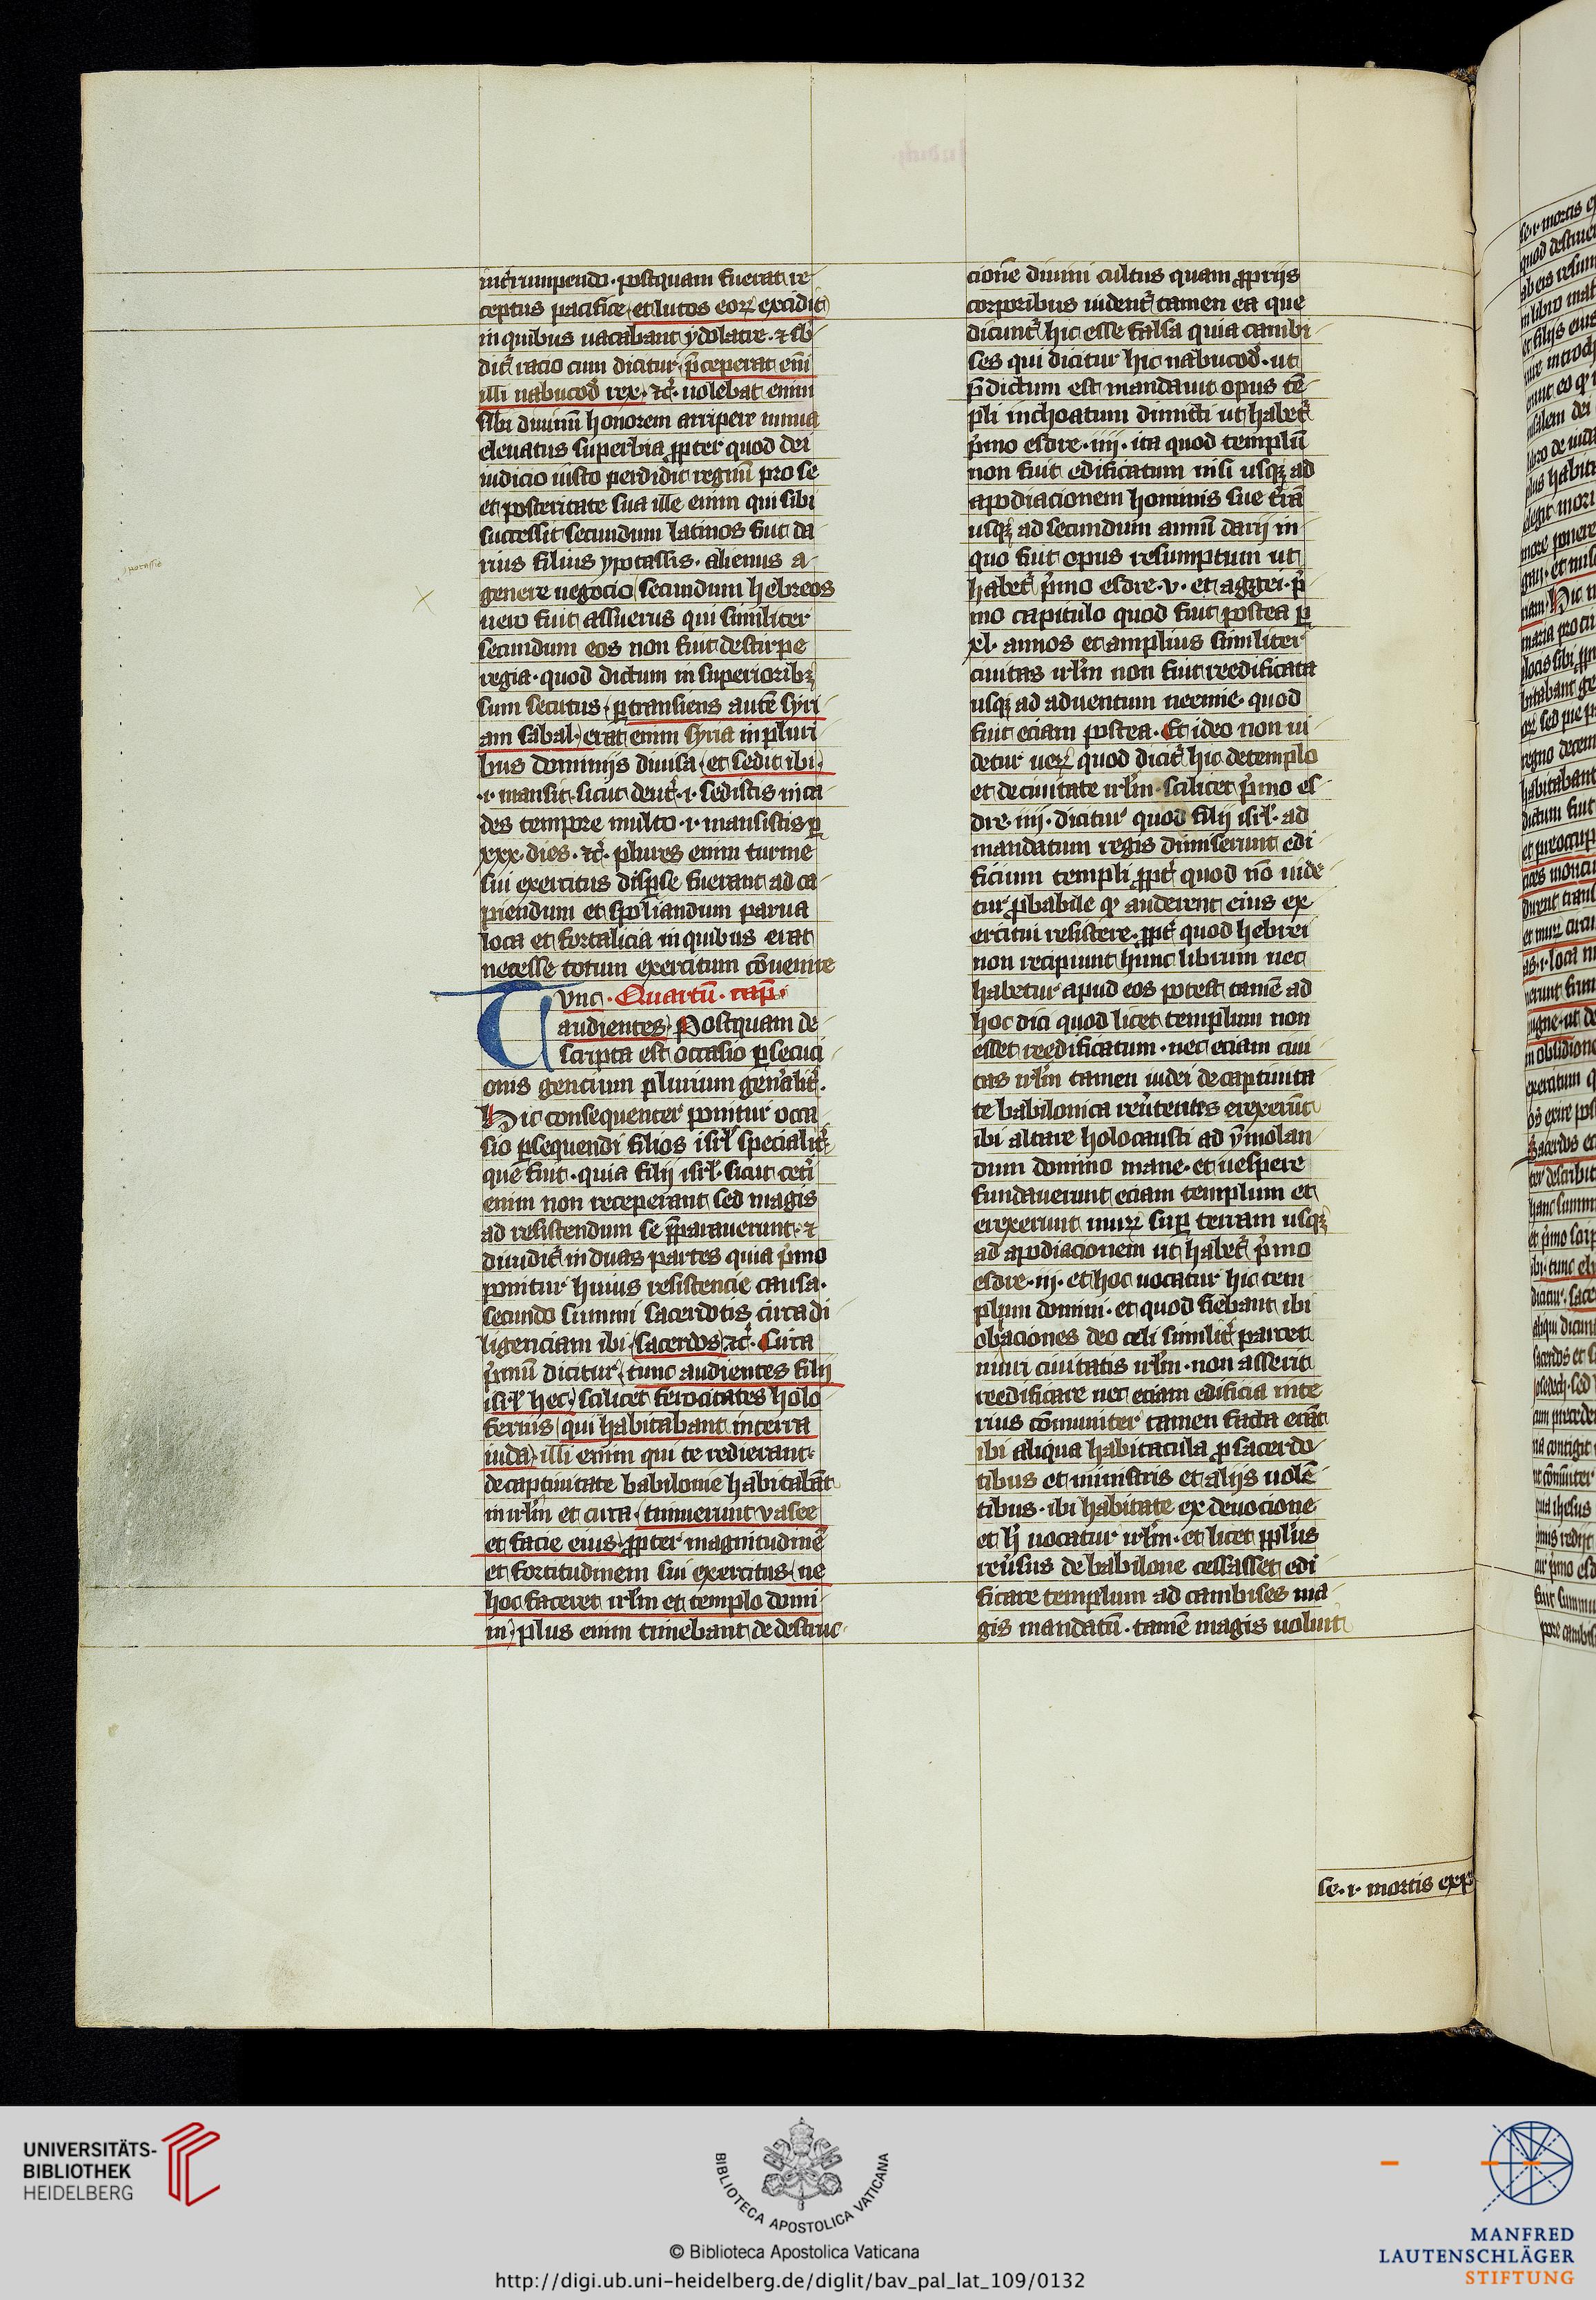 int͛rumpendo · postquam fuerat re-
ceptus pacifice et lucos eoꝝ excidit
in quibus uacabant ydolatrie · ⁊ sb̾-
dit͛ racio cum dicitur p̄ceperat em̄
illi nabucod̾ rex · ⁊c̾ · uolebat enim
sibi diuinū honorem arripere nimia
eleuatus superbia ꝓpter quod dei
iudicio iusto perdidit regnū pro se
et posteritate sua ille enim qui sibi
successit secundum latinos fuit da
rius filius ypotassis · alienus a-
genere negocio secundum hebreos
uero fuit assuerus qui similiter
secundum eos non fuit de stirpe
regia · quod dictum in superioribꝫ
sum secutus · ꝑtransiens autē syri-
am sabal · erat enim syria in pluri
bus dominijs diuisa et sedit ibi
·i· mansit · sicut deut̾ · i · sedistis in ca-
des tempore multo · i · mansistis ꝑ
xxx · dies · ⁊c̾ · plures enim turme
sui exercitus disꝑse fuerant ad ca-
piendum et spoliandum parua
loca et fortalicia in quibus erat
necesse totum exercitum cōuenire
Tvnc · Quartū · cap̄ ·
audientes · Postquam de-
scripta est occasio ꝑsecuci-
onis gencium plurium gen̾alit͛ ·
Hic consequenter ponitur occa-
sio ꝑsequendi filios isrl̾ specialit͛
que fuit · quia filij isrl̾ · sicut cet̾i
enim non receperant sed magis
ad resistendum se p̄parauerunt · ⁊
diuidit͛ in duas partes quia p̾mo
ponitur huius resistencie causa ·
secundo summi sacerdotis circa di-
ligenciam ibi · sacerdos ⁊c̾ · Circa
p̾mū dicitur · tunc audientes filij
isrl̾ hec · scilicet ferocitates holo
fernis qui habitabant in terra
iuda · illi enim qui te redierant
de captiuitate babilonie habitabāt
in irl̾m et circa · timuerunt valee
et facie eius · ꝓpter magnitudinē
et fortitudinem sui exercitus ne
hoc faceret irl̾m et templo domi-
ni plus enim timebant de destruc-
cione diuini cultus quam ꝓprijs
corporibus uident͛ tamen ea que
dicunt͛ hic esse falsa quia cambi-
ses qui dicitur hic nabucod̾ · ut
p̄dictum est mandauit opus tē-
pli inchoatum dimitti ut habet͛
p̾mo esdre · iiij · ita quod templū
non fuit edificatum nisi usqꝫ ad
apodiacionem hominis sue t̾ram
usqꝫ ad secundum annū darij in-
quo fuit opus resumptum ut
habet͛ p̾mo esdre · v · et aggei · p̾
mo capitulo quod fuit postea ꝑ
xl · annos et amplius similiter
ciuitas irl̾m non fuit reedificata
usqꝫ ad aduentum neemie · quod
fuit eciam postea · Et ideo non ui-
detur ueꝝ quod dicit͛ hic de templo
et de ciuitate irl̾m · scilicet p̾mo es-
dre · iiij · dicitur quod filij isrl̾ · ad
mandatum regis dimiserunt edi
ficium templi ꝓpt͛ quod nō uide-
tur ꝓbabile ꝙ auderent eius ex-
ercitui resistere · ꝓpt͛ quod hebrei
non recipiunt hunc librum nec
habetur apud eos potest tamē ad
hoc dici quod licet templum non
esset reedificatum · nec eciam ciui-
tas irl̾m tamen iudei de captiuita-
te babilonica reu̾tentes erexerūt
ibi altare holocausti ad ymolan-
dum domino mane · et uespere
fundauerunt eciam templum et
erexerunt muꝝ suꝑ terram usqꝫ
ad apodiacionem ut habet͛ p̾mo
esdre · iij · et hoc uocatur hic tem
plum domini · et quod fiebant ibi
oblaciones deo celi similit͛ patet
muri ciuitatis irl̾m · non asserit
reedificare nec eciam edificia inte-
rius cōmuniter tamen facta erāt
ibi aliqua habitacula ꝓ sacerdo-
tibus et ministris et alijs uolē-
tibus · ibi habitate ex deuocione
et h̾ uocatur irl̾m · et licet ppl̾us
reu̾sus de babilone cessasset edi
ficare templum ad cambises ma-
gis mandatū · tamē magis uoluit
ypotassis
se · i · mortis exp
UNIVERSITÄTS-
BIBLIOTHEK
HEIDELBERG
BIBLIOTECA APOSTOLICA VATICANA
© Biblioteca Apostolica Vaticana
http://digi.ub.uni-heidelberg.de/diglit/bav_pal_lat_109/0132
MANFRED
LAUTENSCHLÄGER
STIFTUNG